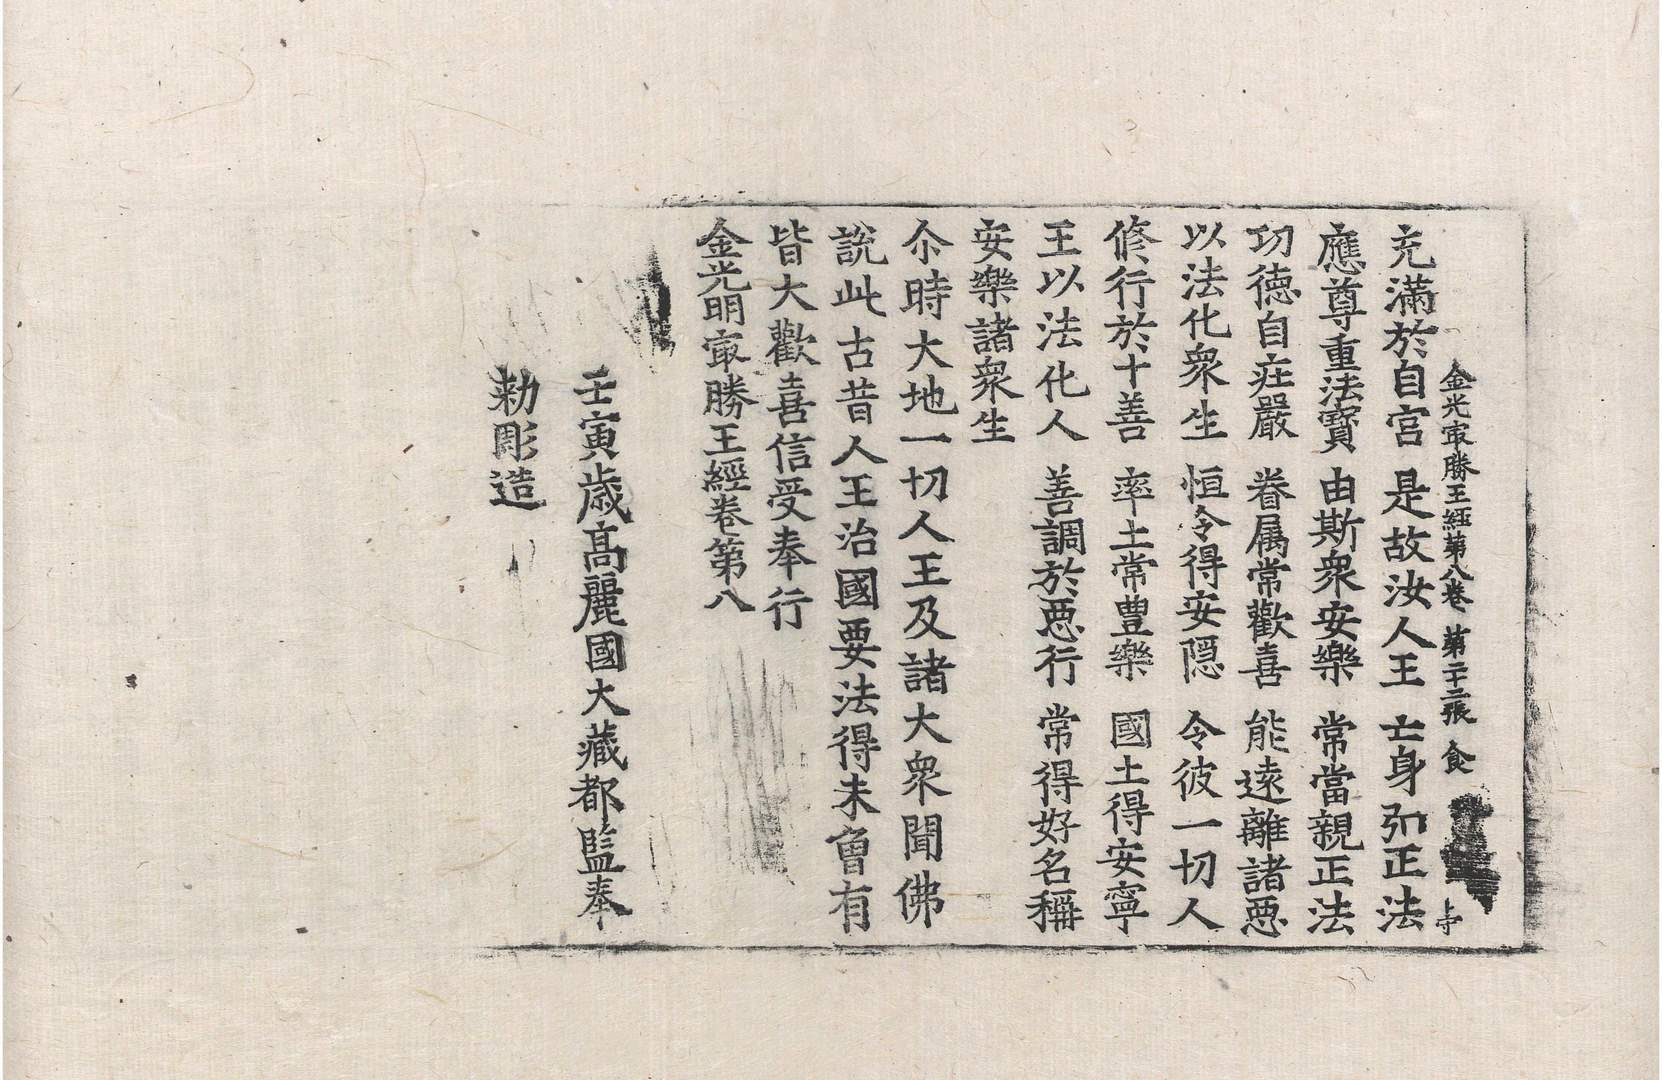 金光㝡勝王經第八卷　第二十二張　食
充滿於自宮　是故汝人王　亡身弘正法
應尊重法寶　由斯衆安樂　常當親正法
功德自莊嚴　眷属常歡喜　能遠離諸惡
以法化衆生　恒令得安隠　令彼一切人
修行於十善　率土常豊樂　國土得安寧
王以法化人　善調於惡行　常得好名稱
安樂諸衆生
尒時大地一切人王及諸大衆聞佛
說此古昔人王治國要法得未曾有
皆大歡喜信受奉行
金光明㝡勝王經卷第八
壬寅歳高麗國大藏都監奉
勑彫造